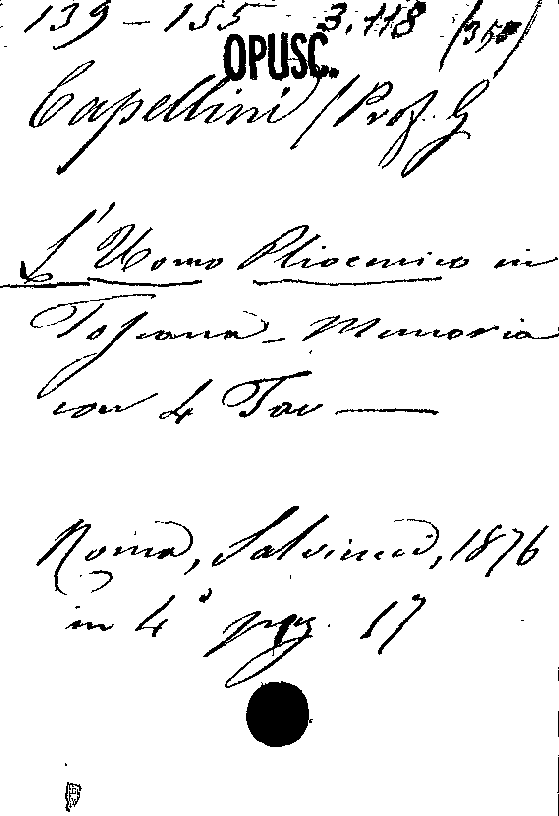 139 – 155 3.118
OPUSC.
Capellini / Prof. G
L'Uomo Pliocenico in
Toscana – Memoria
con 4 Tav —
Roma, Salviucci, 1876
in 4° pag. 17